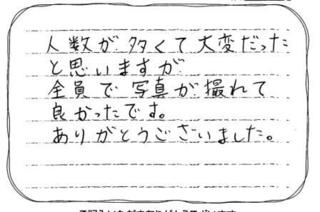 人数が多くて大変だった
と思いますが
全員で写真が撮れて
良かったです。
ありがとうございました。